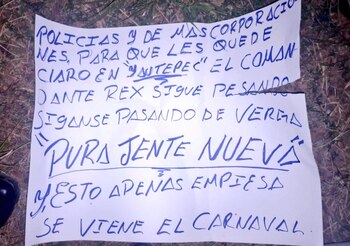 POLICIAS Y DE MAS CORPORACIO
NES, PARA QUE LES QUEDE
CLARO EN "YAUTEPEC" EL COMAN
DANTE REX SIGUE PESANDO
SIGANSE PASANDO DE VERGA
"PURA JENTE NUEVA"
Y, ESTO APENAS EMPIESA
SE VIENE EL CARNAVAL.